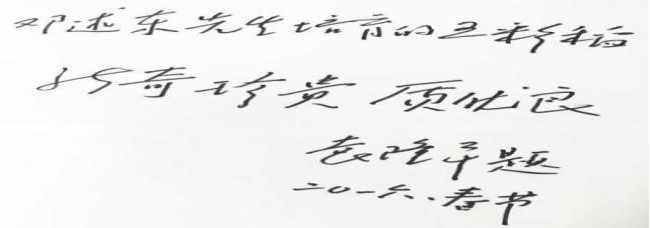 邓述东先生培育的五彩稻
神奇珍贵 质优良
袁隆平题
二〇一六.春节